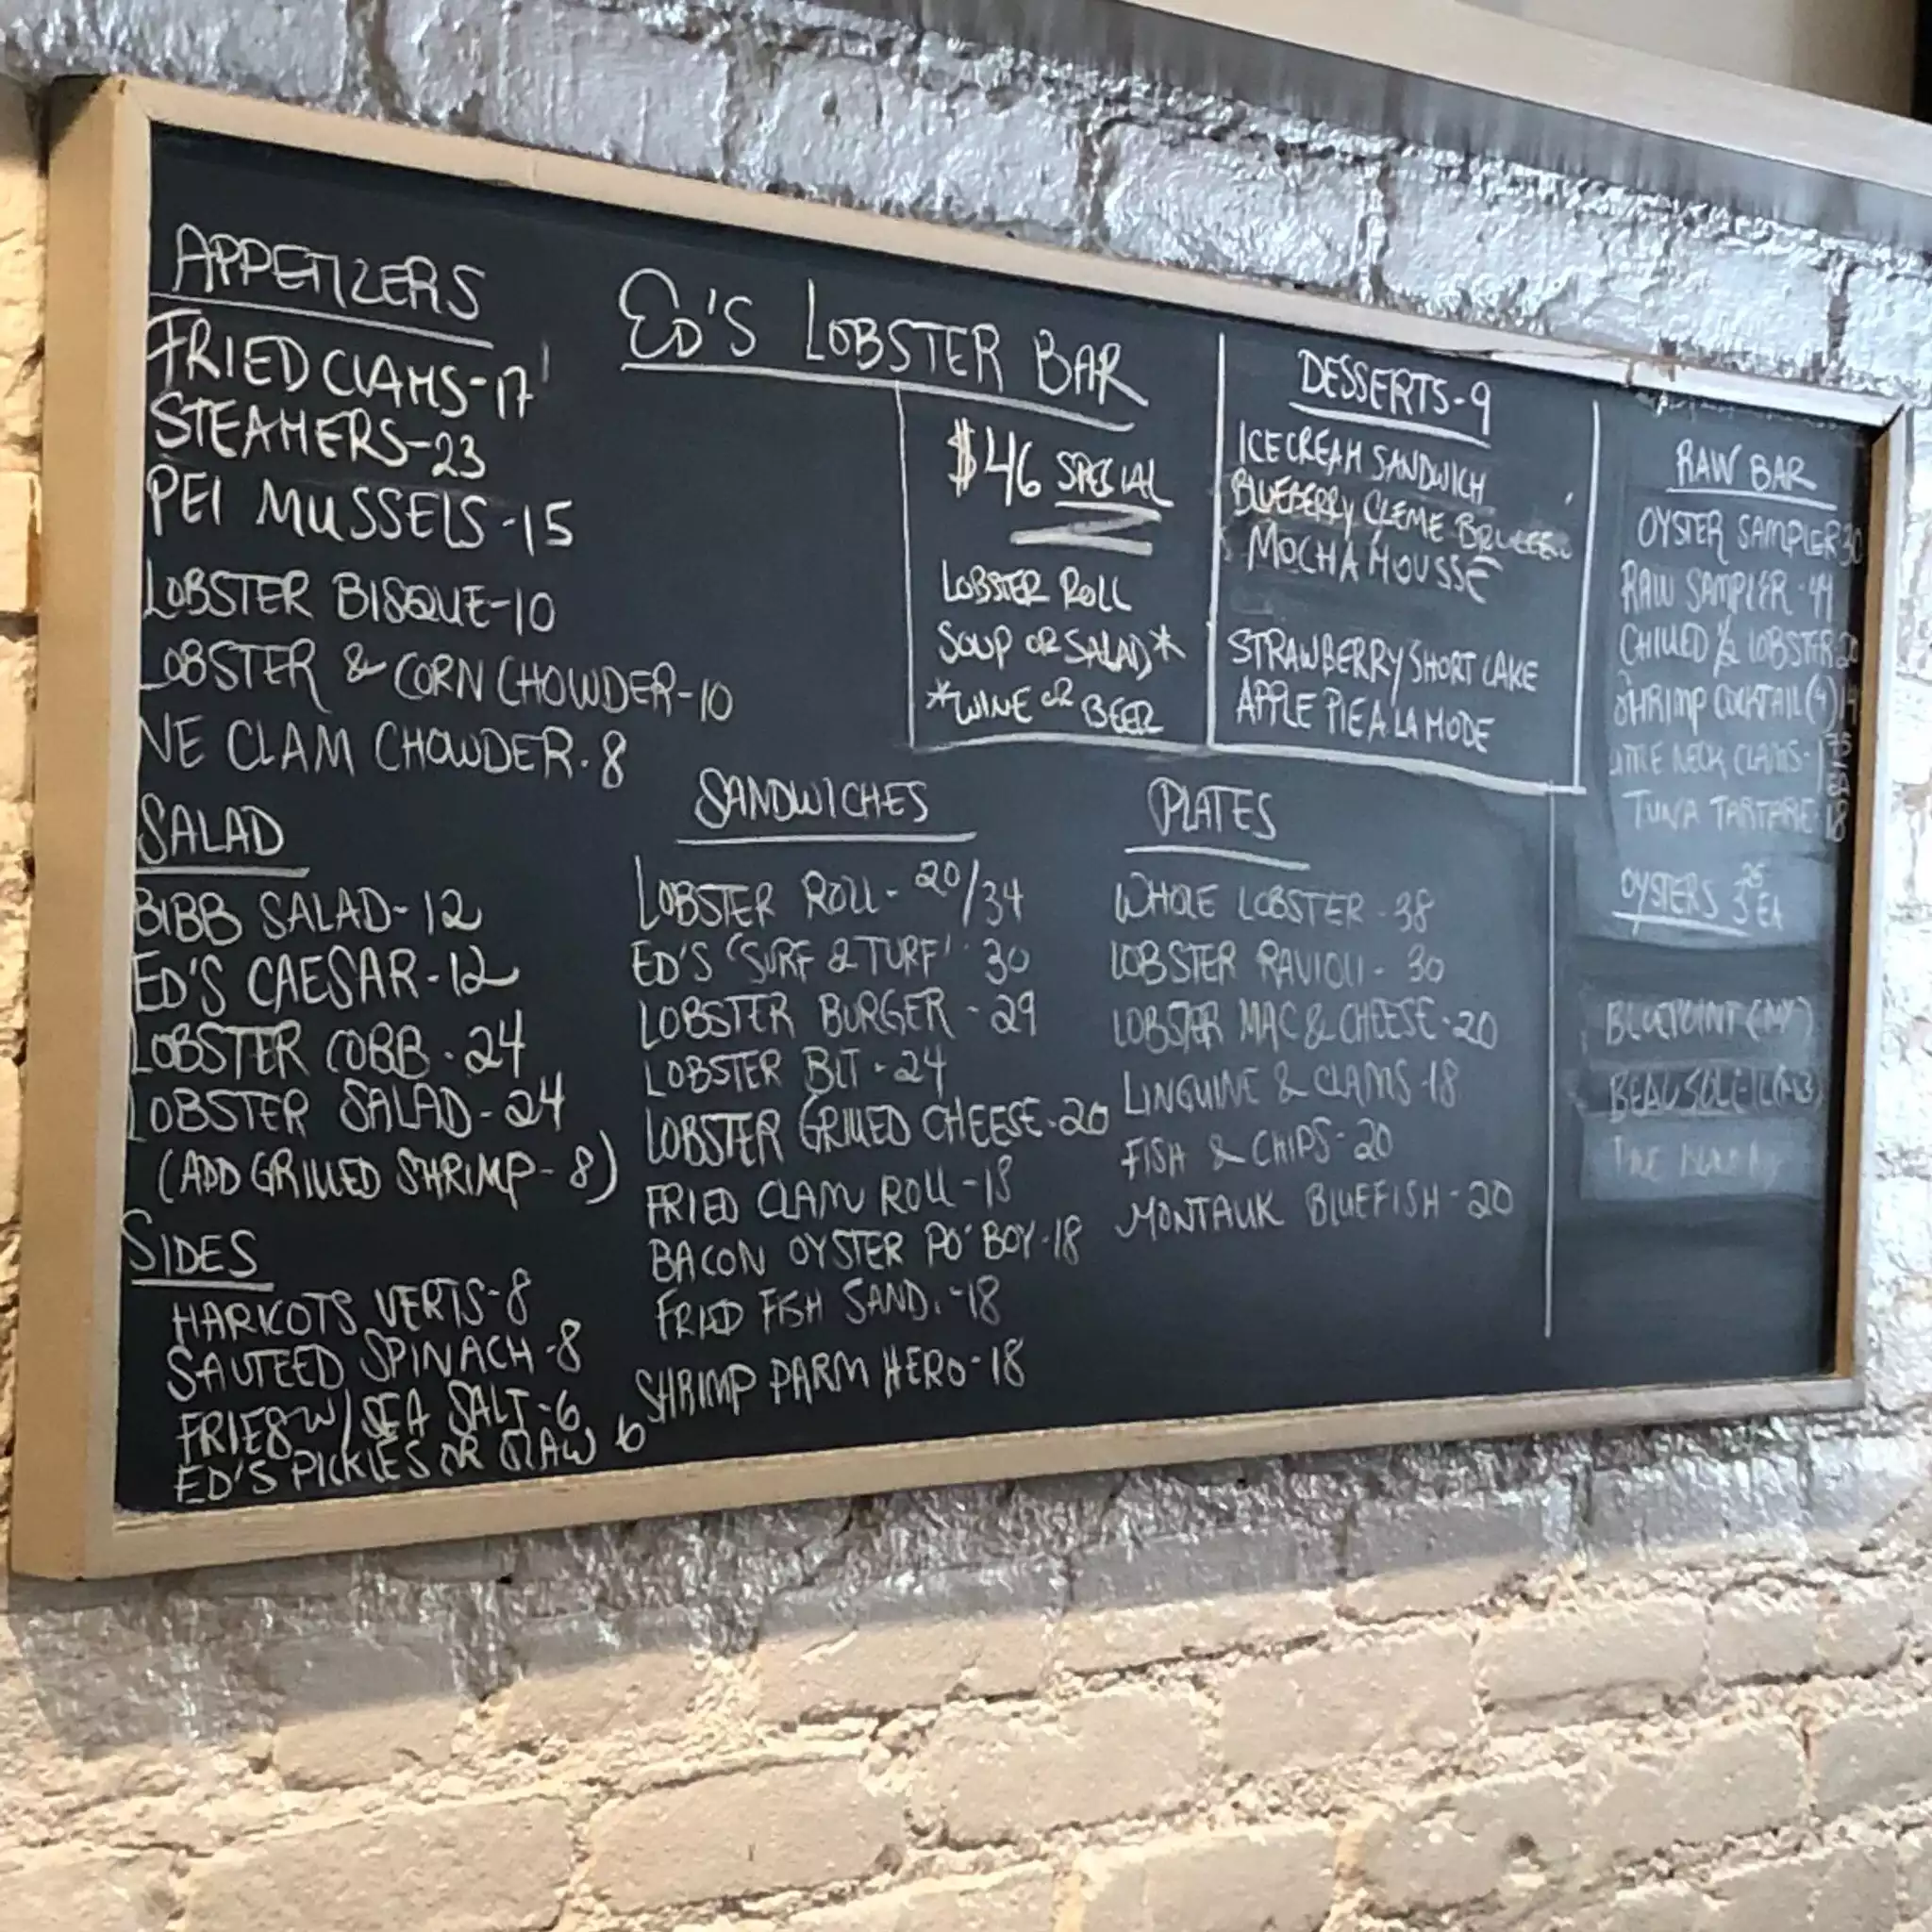 APPETIZERS
FRIED CLAMS-17
STEAMERS-23
PEI MUSSELS-15
LOBSTER BISQUE-10
LOBSTER & CORN CHOWDER-10
NE CLAM CHOWDER.8
SALAD
BIBB SALAD-12
ED'S CAESAR-12
LOBSTER COBB.24
LOBSTER SALAD-24
(ADD GRILLED SHRIMP-8)
SIDES
HARICOTS VERTS-8
SAUTEED SPINACH-8
FRIES W/SEA SALT-6
ED'S PICKLES OR SLAW 6
ED'S LOBSTER BAR
$46 SPECIAL
LOBSTER ROLL
SOUP OR SALAD*
*WINE OR BEER
DESSERTS-9
ICE CREAM SANDWICH
BLUEBERRY CREME BRULEE
MOCHA MOUSSE
STRAWBERRY SHORT CAKE
APPLE PIE A LA MODE
SANDWICHES
LOBSTER ROLL-20/34
ED'S "SURF & TURF" 30
LOBSTER BURGER-29
LOBSTER BLT-24
LOBSTER GRILLED CHEESE-20
FRIED CLAM ROLL-18
BACON OYSTER PO'BOY-18
FRIED FISH SAND.-18
SHRIMP PARM HERO-18
PLATES
WHOLE LOBSTER-38
LOBSTER RAVIOLI-30
LOBSTER MAC & CHEESE-20
LINGUINE & CLAMS-18
FISH & CHIPS-20
MONTAUK BLUEFISH-20
RAW BAR
OYSTER SAMPLER 30
RAW SAMPLER-44
CHILLED ½ LOBSTER 20
SHRIMP COCKTAIL (4) 14
LITTLE NECK CLAMS-1 75 EA
TUNA TARTARE-18
OYSTERS 3 25 EA
BLUEPOINT (NY)
BEAUSOLEIL